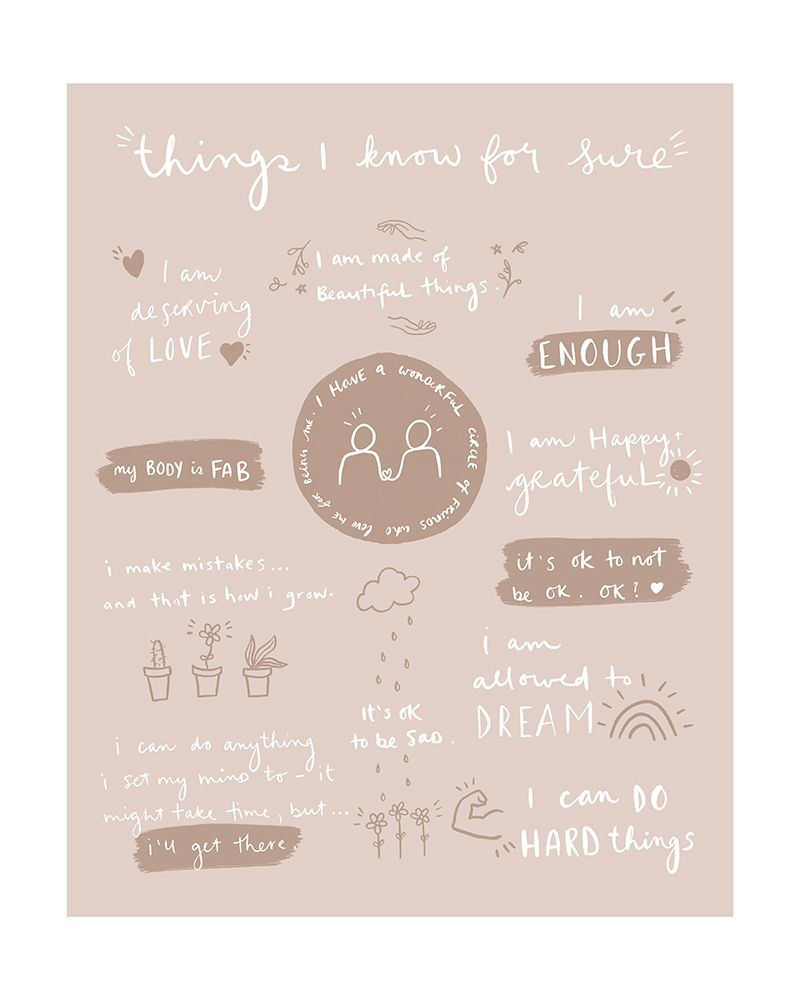 things I know for sure
I am made of
Beautiful things.
I am
deserving
of LOVE
I am
ENOUGH
I HAVE a wonderful circle of friends who love me for being me.
my BODY is FAB
I am Happy +
grateful
it's ok to not
be ok. OK?
i make mistakes...
and that is how i grow.
i am
allowed to
DREAM
It's OK
to be SAD.
i can do anything
i set my mind to - it
might take time, but...
i'll get there.
I can DO
HARD things